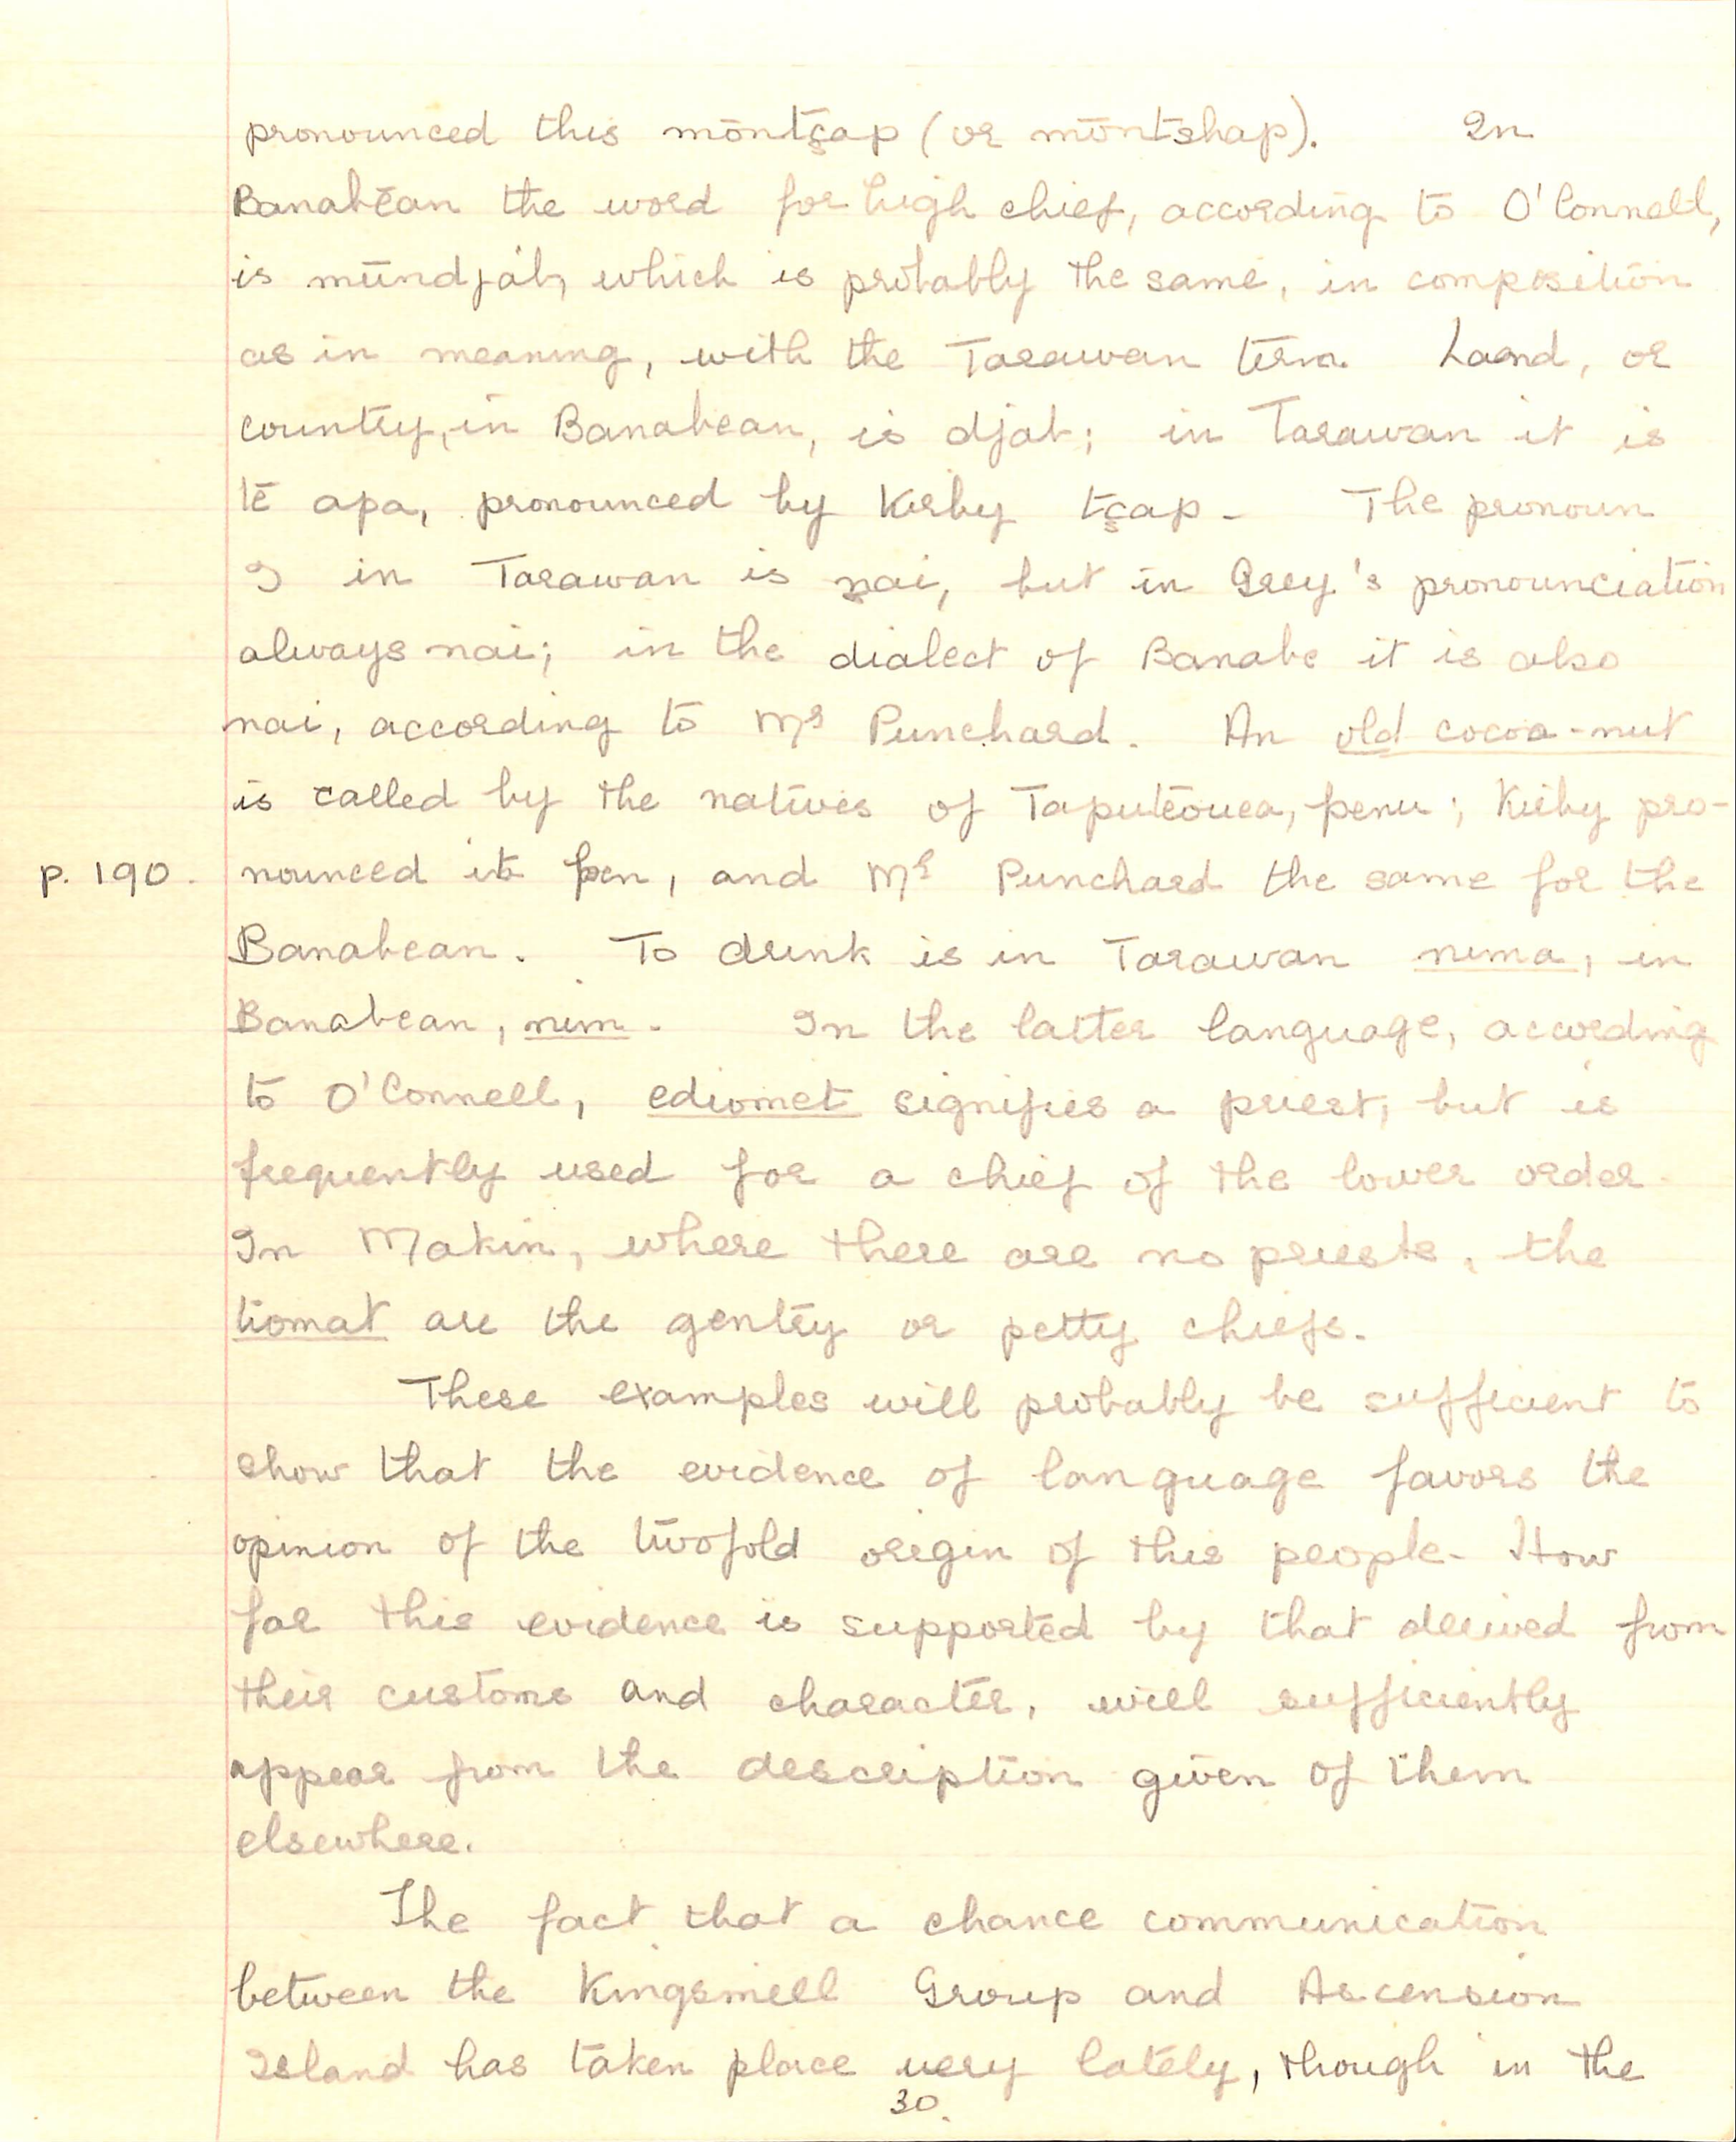 pronounced this möntşap (or möntshap). In
Banabēan the word for high chief, according to O'Connell,
is mündjáb, which is probably the same, in composition
as in meaning, with the Tarawan term. Land, or
country, in Banabean, is djab; in Tarawan it is
te apa, pronounced by Kirby tşap. The pronoun
I in Tarawan is ŋai, but in Grey's pronounciation
always nai; in the dialect of Banabe it is also
nai, according to Mr Punchard. An old cocoa-nut
is called by the natives of Taputeouea, penu; Kirby pro-
p. 190. nounced it pen, and Mr Punchard the same for the
Banabean. To drink is in Tarawan nima, in
Banabean, nim. In the latter language, according
to O'Connell, ediomet signifies a priest, but is
frequently used for a chief of the lower order.
In Makin, where there are no priests, the
tiomat are the gentry or petty chiefs.
These examples will probably be sufficient to
show that the evidence of language favors the
opinion of the twofold origin of this people. How
far this evidence is supported by that derived from
their customs and character, will sufficiently
appear from the description given of them
elsewhere.
The fact that a chance communication
between the Kingsmill Group and Ascension
Island has taken place very lately, though in the
30.